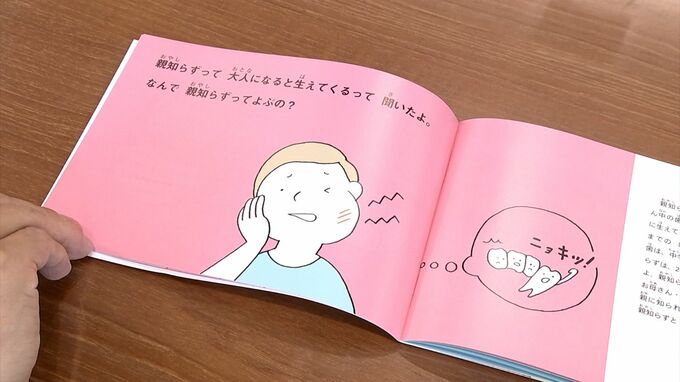 親知らずって 大人になると生えてくるって 聞いたよ。
なんで 親知らずってよぶの？
ニョキッ！
親知ら
ん中の歯
に生えて
までの
歯は、中
らずは、2
よ、親知ら
お母さん・
親に知られ
親知らずと